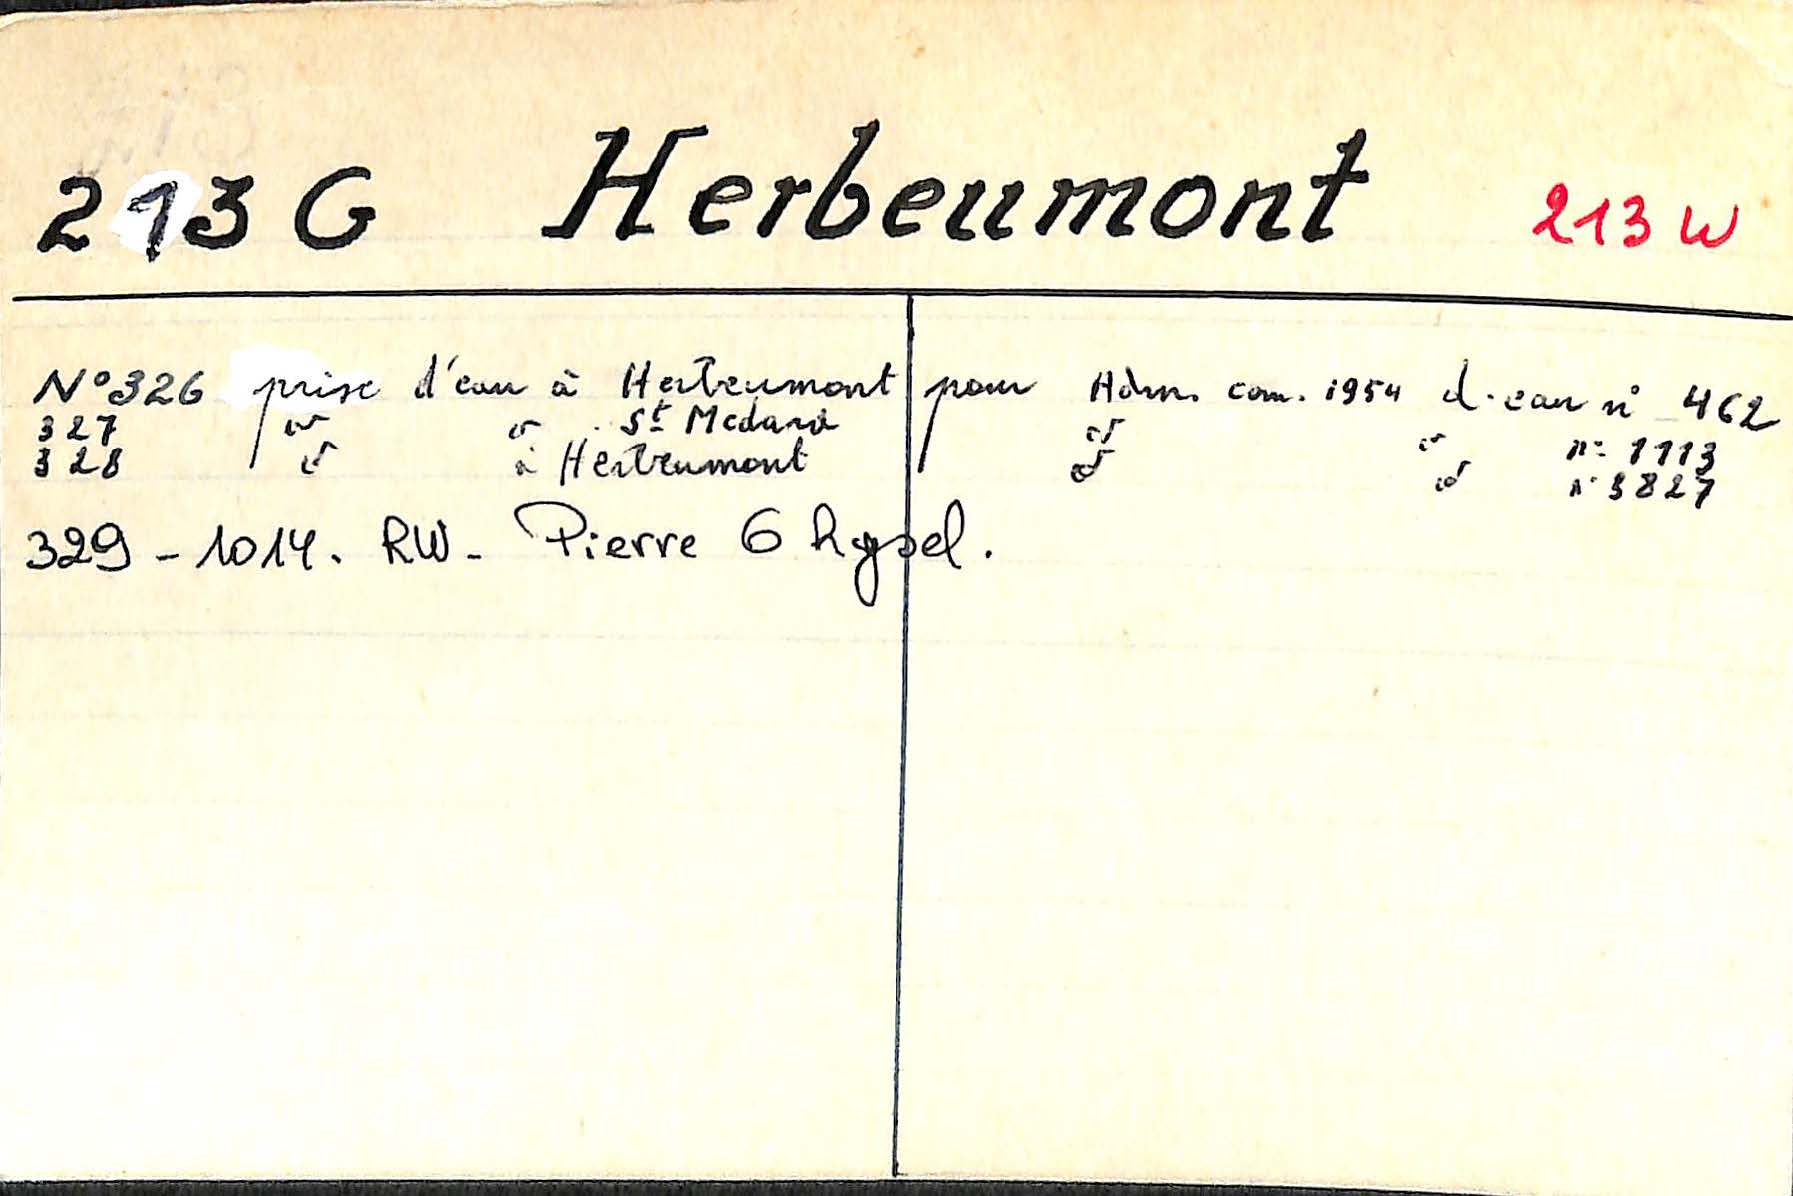 213 G Herbeumont 213 W
N° 326 prise d'eau à Herbeumont pour Adm. com. 1954 d. eau n° 462
327 id id St Medard id id n° 1113
328 id à Herbeumont id id n° 3827
329 - 1014. RW - Pierre Ghysel.